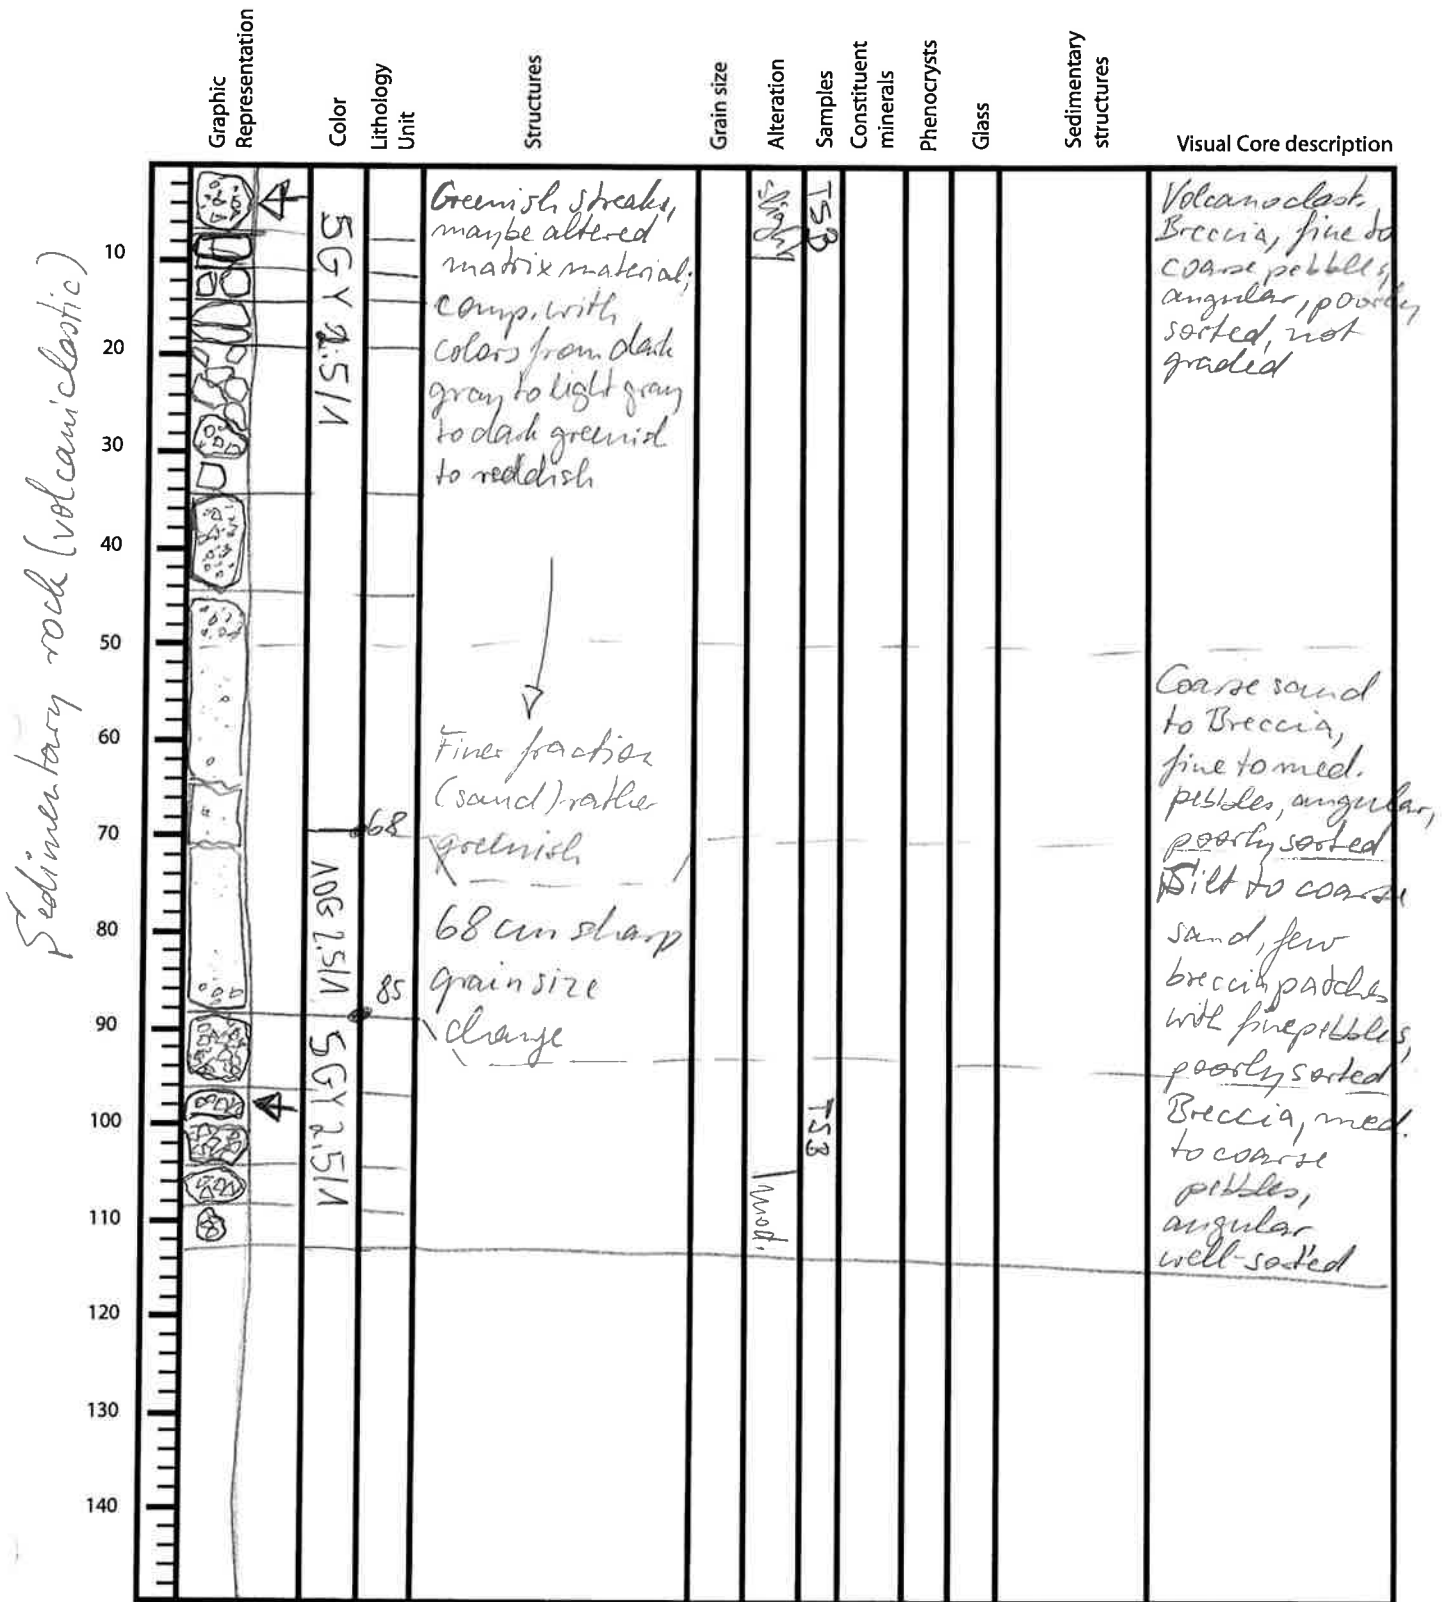 Graphic
Representation
Color
Lithology
Unit
Structures
Grain size
Alteration
Samples
Constituent
minerals
Phenocrysts
Glass
Sedimentary
structures
Visual Core description
Sedimentary rock (volcaniclastic)
10
20
30
40
50
60
70
80
90
100
110
120
130
140
5GY 2.5/1
68
10G 2.5/1
85
5GY 2.5/1
Greenish streaks,
maybe altered
matrix material;
comp. with
colors from dark
gray to light gray
to dark greenish
to reddish
Finer fraction
(sand) rather
greenish
68 cm sharp
grain size
change
slightly
mod.
TSB
TSB
Volcanoclast.
Breccia, fine to
coarse pebbles,
angular, poorly
sorted, not
graded
Coarse sand
to Breccia,
fine to med.
pebbles, angular,
poorly sorted
Silt to coarse
sand, few
breccia patches
with fine pebbles,
poorly sorted
Breccia, med.
to coarse
pebbles,
angular
well-sorted